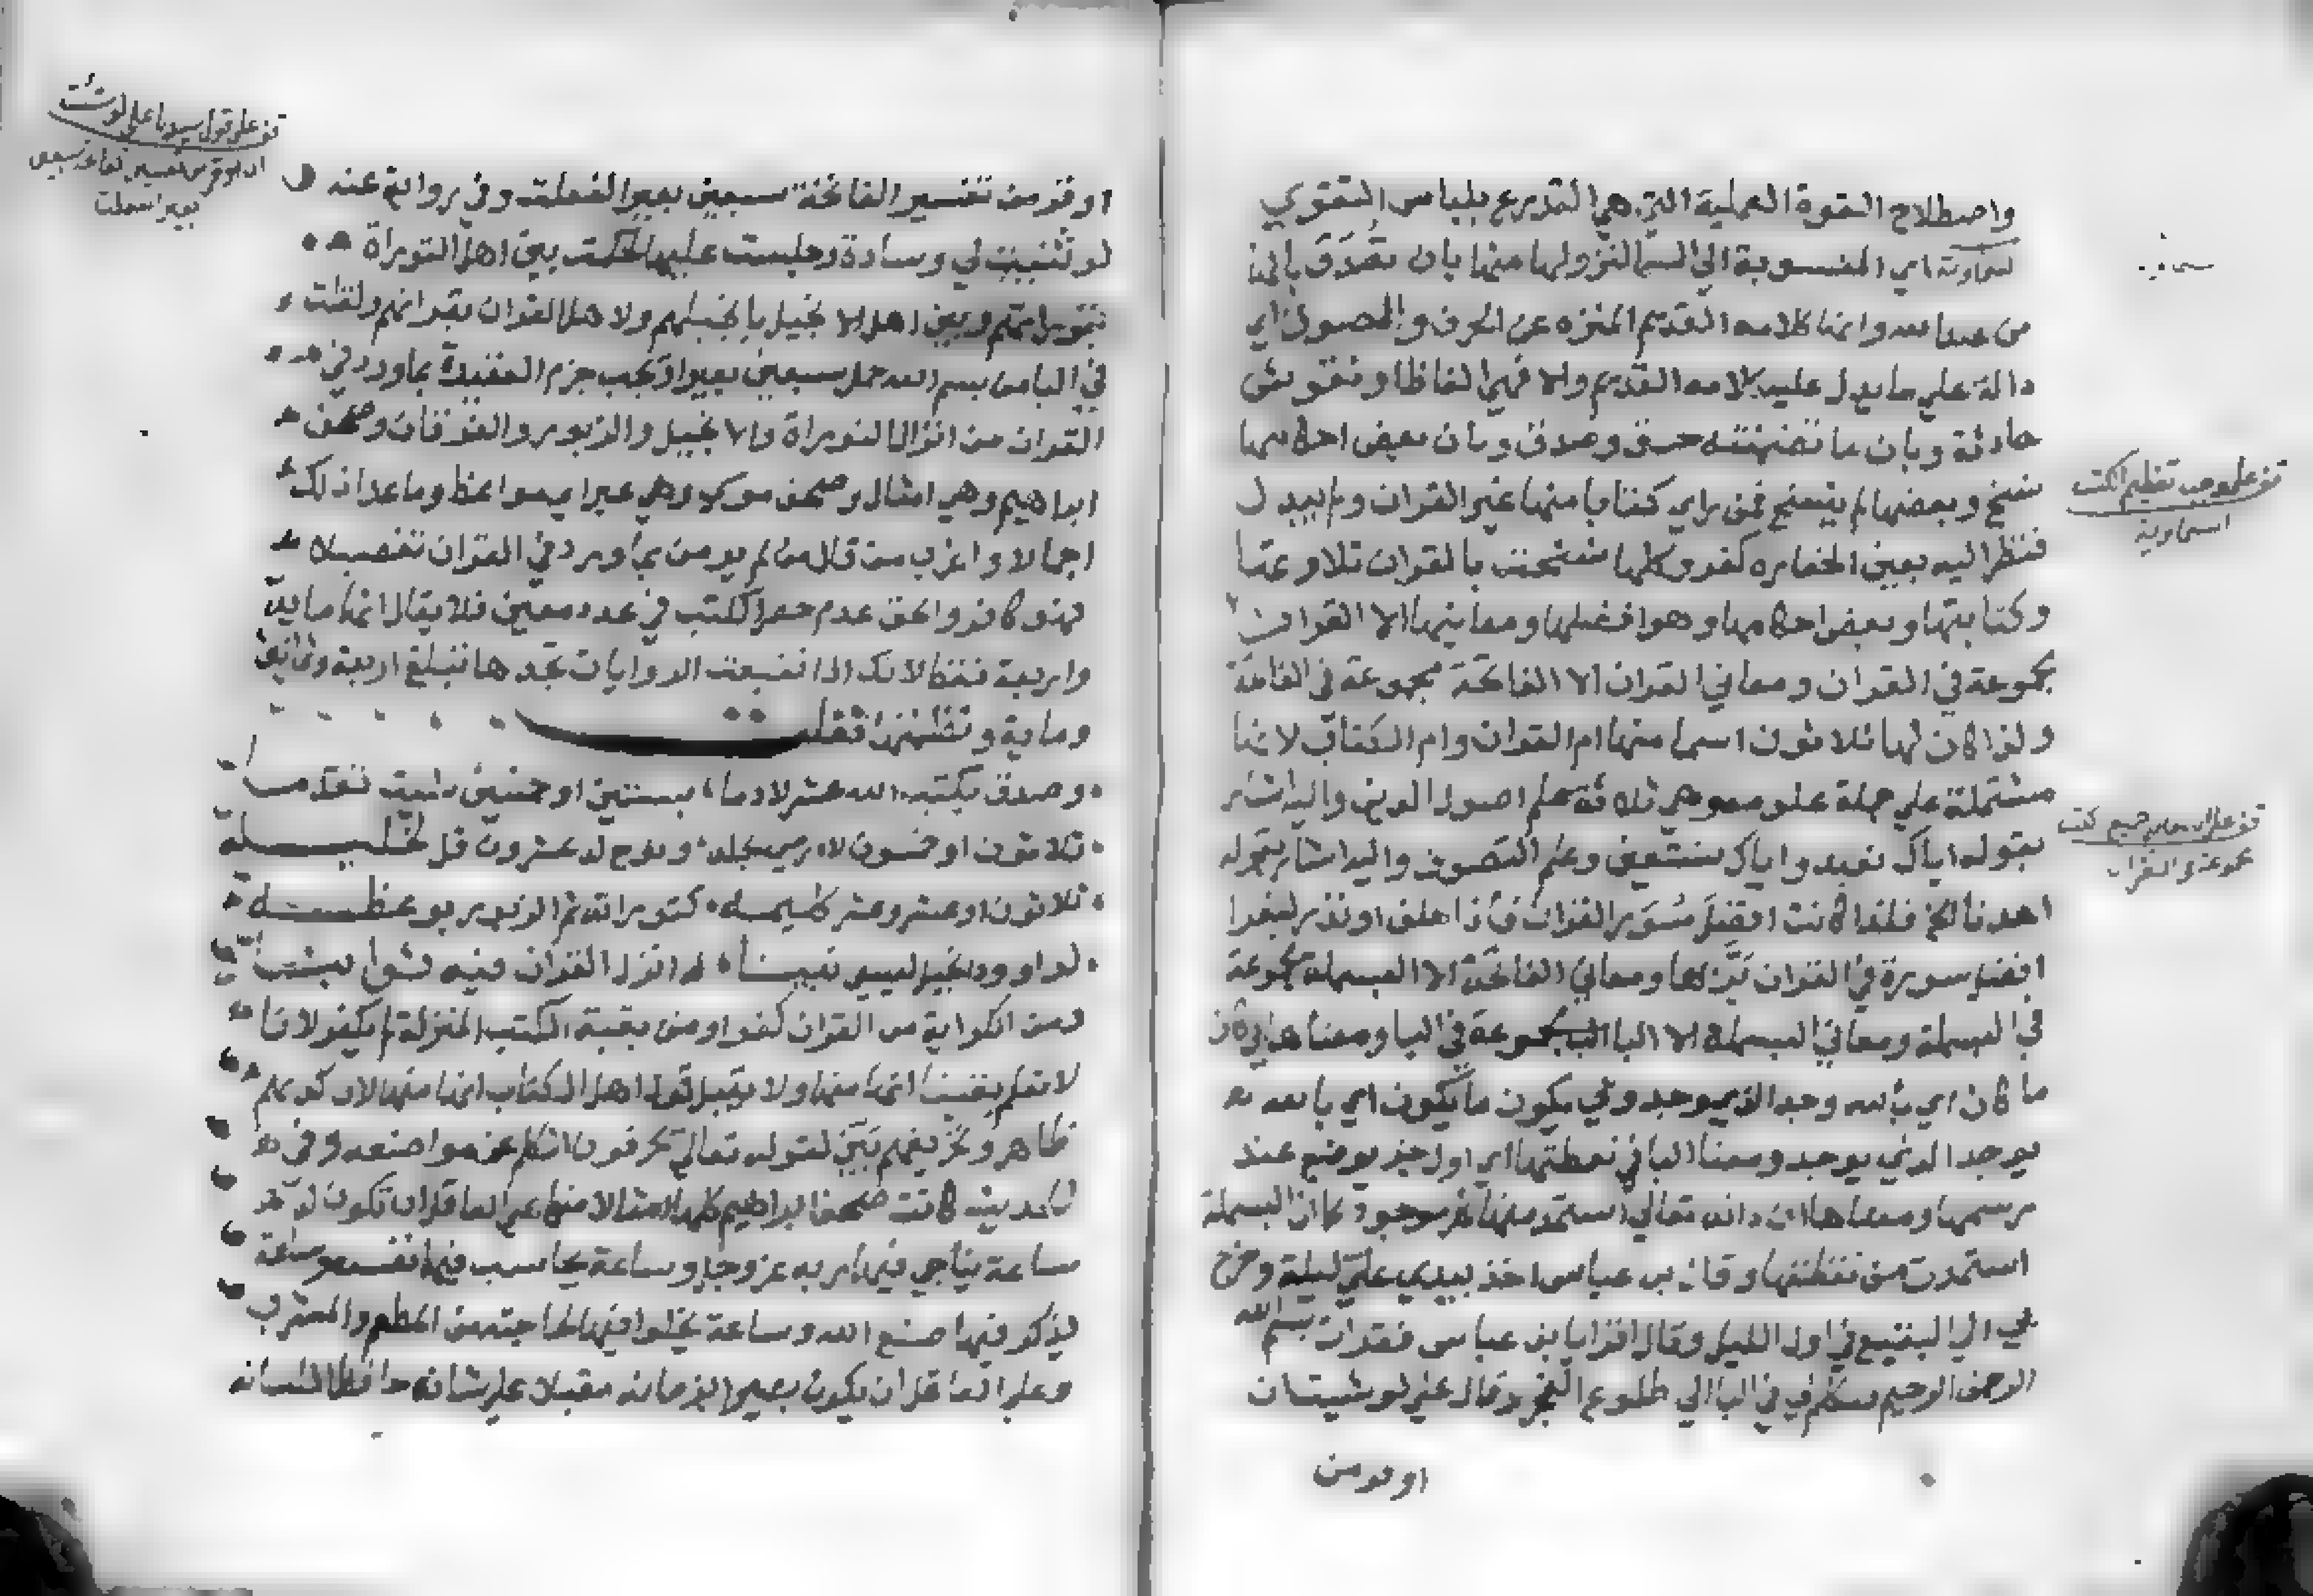 واصطلاح القوة العملية التي هي التدرع بلباس التقوي
السماوية اي المنسوبة الي السما لنزولها منها بان تصدق بانها
من عند الله وانها كلامه القديم المنزه عن الحرف والصوت اي
دالة علي ما يدل عليه كلامه القديم والا فهي الفاظ ونقوش
حادثة وبان ما تضمنته حق وصدق وبان بعض احكامها
نسخ وبعضها لم ينسخ فمن راي كتابا منها غير القران ولم يبدل
فنظر اليه بعين الحقاره كفر وكلها نسخت بالقران تلاوتها
وكتابتها وبعض احكامها وهو افضلها ومعانيها الا القران
مجموعة في القران ومعاني القران الا الفاتحة مجموعة في الفاتحة
ولذا كان لها ثلاثون اسما منها ام القران وام الكتاب لانها
مشتملة علي جملة علومه وهي ثلاثة علم اصول الدين واليه اشار
بقوله اياك نعبد واياك نستعين وعلم التصوف واليه اشار بقوله
اهدنا الخ فلذا كانت افضل سور القران فاذا حلف او نذر ليقرا
افضل سورة في القران بر بها ومعاني الفاتحة الا البسملة مجموعة
في البسملة ومعاني البسملة الا البا مجموعة في البا ومعناها بي كان
ما كان اي بالله وجد الذي وجد وبي يكون ما يكون اي بالله
يوجد الذي يوجد ومعنا البا في نقطتها اي اول جز يوضع عند
رسمها ومعناها ان ذاته تعالي استمد منها كل موجود كما ان البسملة
استمدت من نقطتها وقال بن عباس اخذ بيدي علي ليلة وخرج
بي الي البقيع في اول الليل وقال اقرا يا بن عباس فقرات بسم الله
الرحمن الرحيم فتكلم لي في البا الي طلوع الفجر وقال علي لو شيت ان
اوقر من
قف علي وجوب تعظيم الكتب
السماوية
قف علي ان معاني جميع الكتب
مجموعة في القران
اوقر من تفسير الفاتحة سبعين بعيرا لفعلت وفي رواية عنه
لو ثنيت لي وسادة وجلست عليها لحكمت بين اهل التوراة
بتوراتهم وبين اهل الانجيل بانجيلهم ولاهل القران بقرانهم ولقلت
في البا من بسم الله حمل سبعين بعيرا وتجب جزم العقيدة بما ورد في
القران من انزال التوراة والانجيل والزبور والفرقان وصحف
ابراهيم وهي امثال وصحف موسي وهي عبر اي مواعظ وما عدا ذلك
اجمالا واغرب من قال من لم يومن بما ورد في القران تفصيلا
فهو كافر والحق عدم حصر الكتب في عدد معين فلا يقال انها ماية
واربعة فقط لانك اذا تتبعت الروايات تجدها تبلغ اربعة وثمانين
وماية ونظمتها فقلت
وصدق بكتب الله عشر لادما بستين او خمسين شيت تقدما
ثلاثون او خمسون لادريس بجلا ونوح له عشرون قل لخليله
ثلاثون او عشر وعشر كليمه كتوراته ثم الزبور بوعظه
لداوود انجيل لعيسي نبينا له انزل القران فيه
ومن انكر اية من القران كفر او من بقية الكتب المنزلة لم يكفر لانا
لا نعلم يقينا انها منها ولا يقبل قول اهل الكتاب انها منها لان كذبهم
ظاهر وتحريفهم بين لقوله تعالي يحرفون الكلم عن مواضعه وفي
الحديث كانت صحف ابراهيم كلها امثالا منها علي العاقل ان تكون له
ساعة يناجي فيها ربه عز وجل وساعة يحاسب فيها نفسه وساعة
يفكر فيها صنع الله وساعة يخلوا فيها لحاجته من المطعم والمشرب
وعلي العاقل ان يكون بصيرا بزمانه مقبلا علي شانه حافظا للسانه
قف علي قول سيدنا علي لو شئت
ان اوقر من تفسير الفاتحة سبعين
بعيرا لفعلت